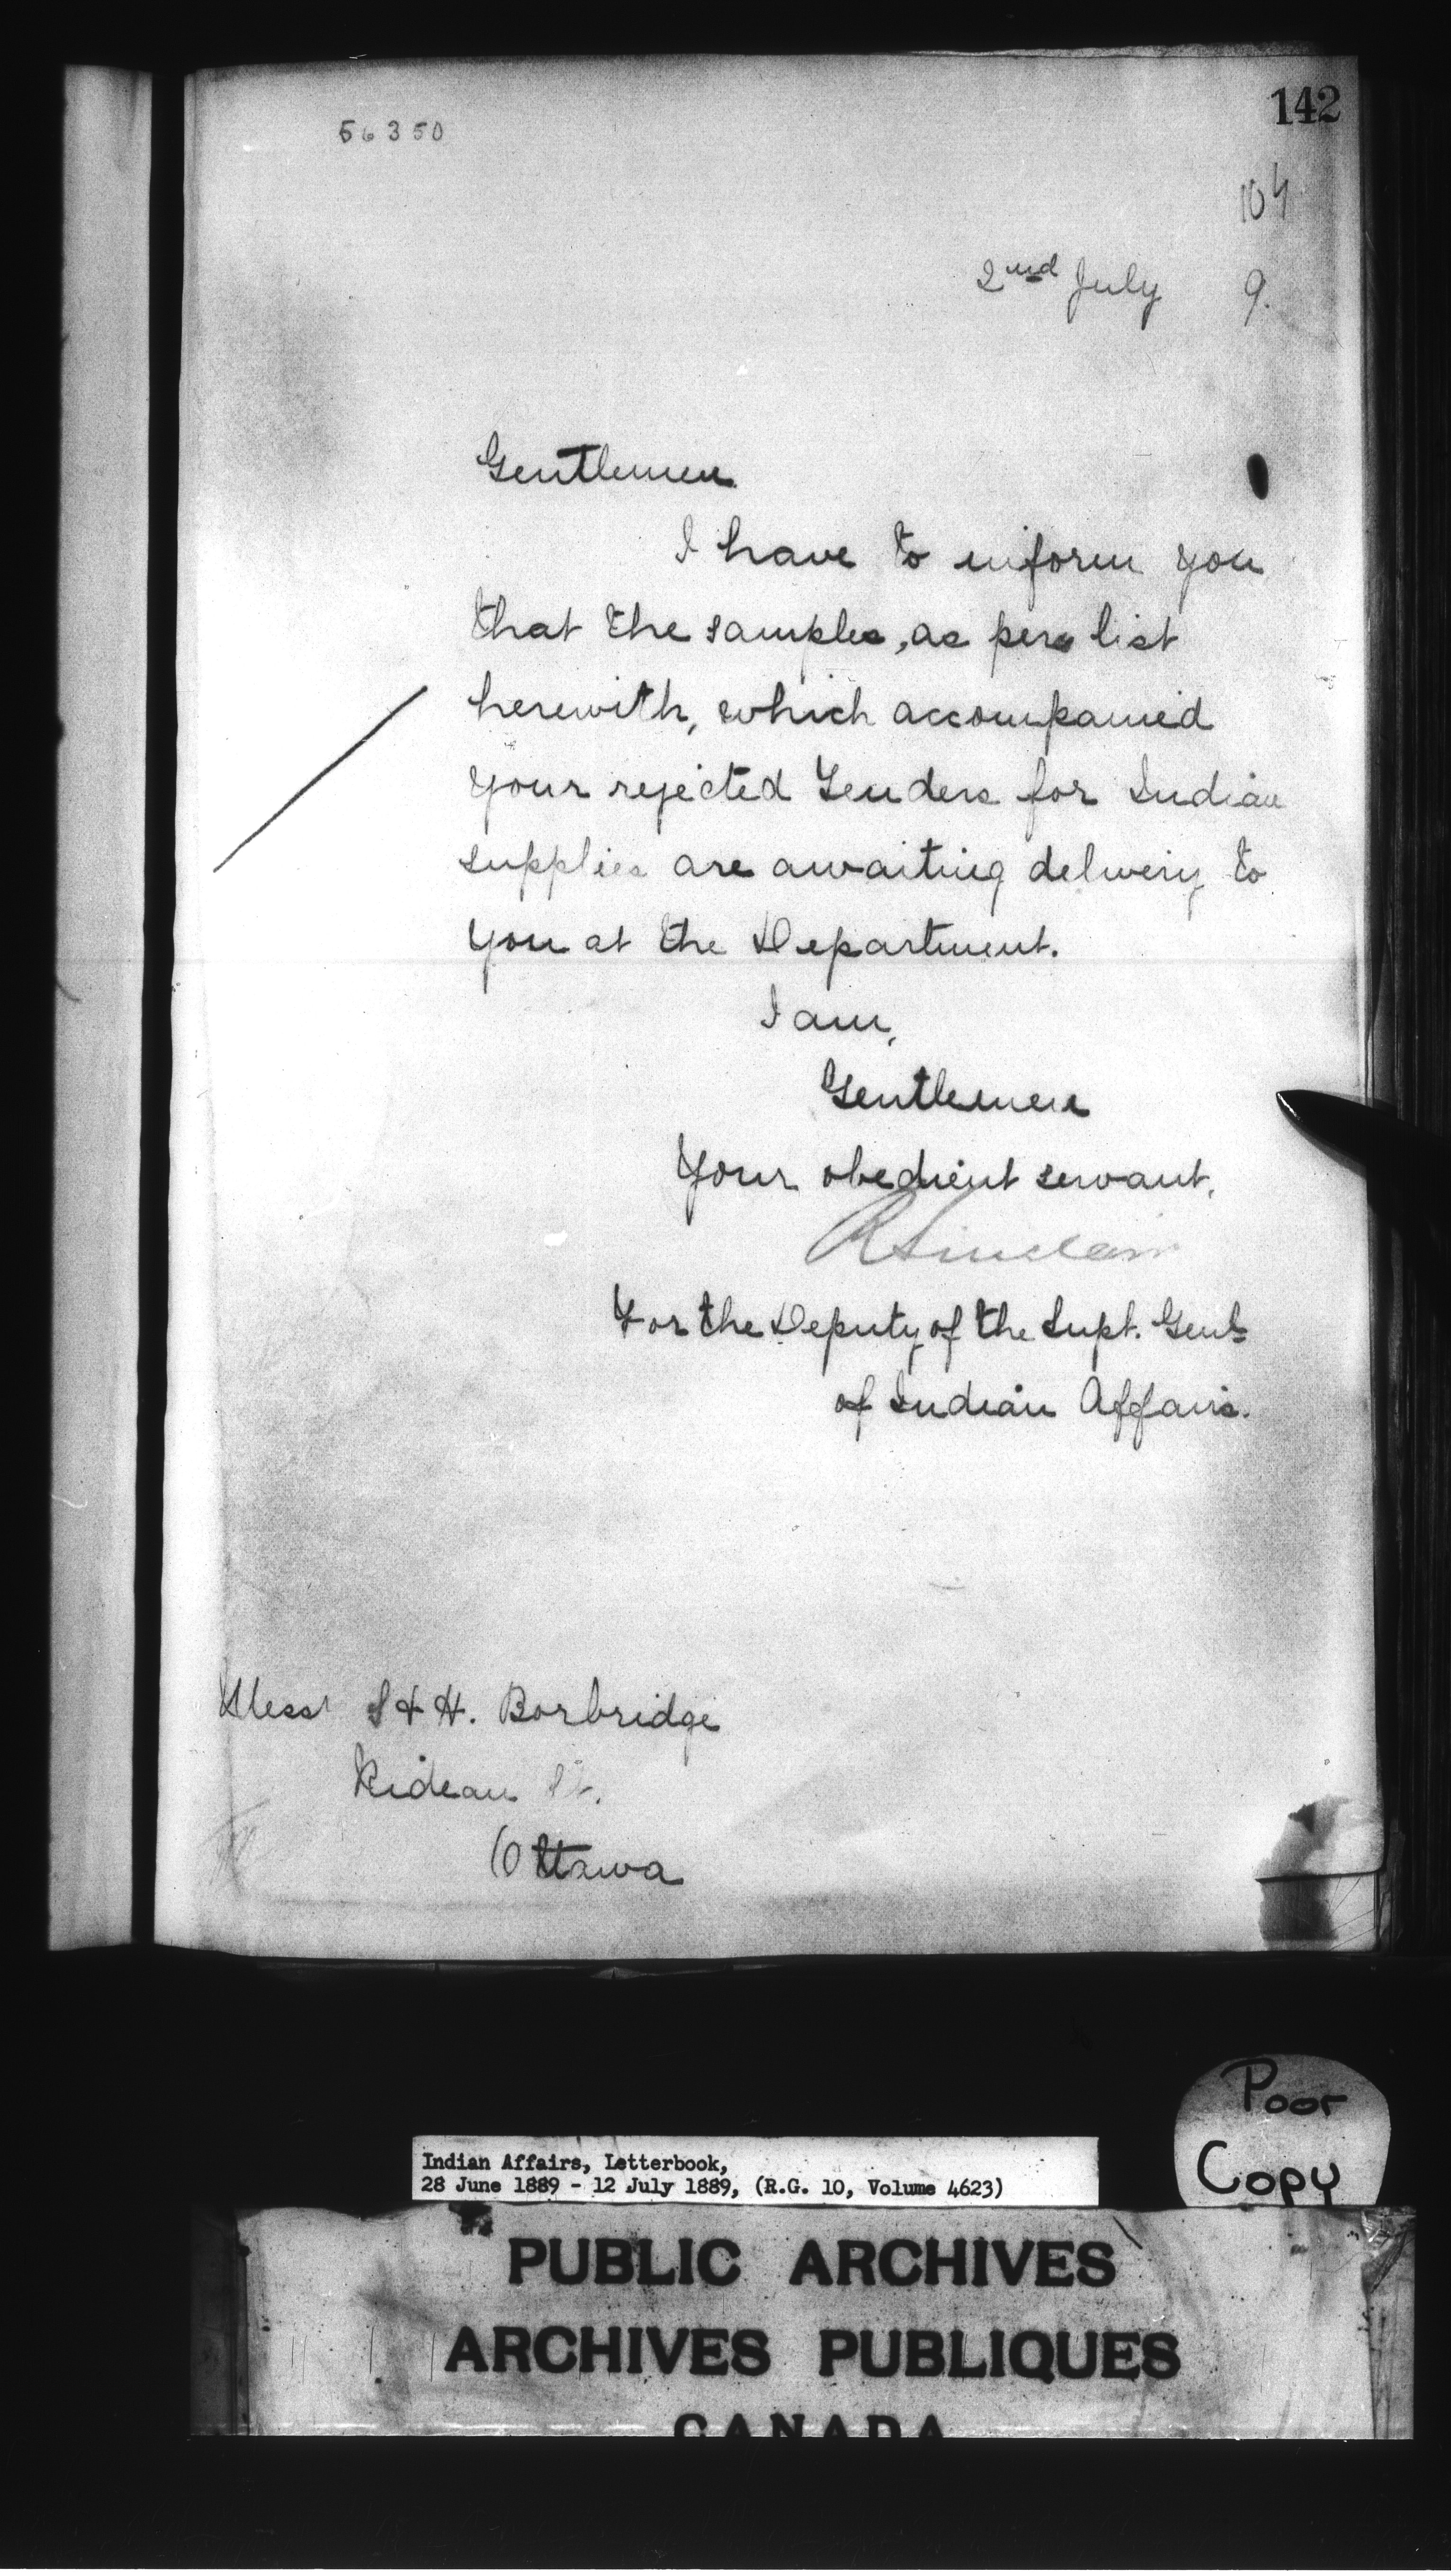 142
56350
104
2nd July 9.
Gentlemen
I have to inform you
that the samples, as per list
herewith, which accompanied
your rejected Tenders for Indian
supplies are awaiting delivery to
you at the Department.
I am,
Gentlemen
Your obedient servant,
R Sinclair
For the Deputy of the Supt. Genl
of Indian Affairs.
Mess S & H. Borbridge
Rideau St.
Ottawa
Poor
Copy
Indian Affairs, Letterbook,
28 June 1889 - 12 July 1889, (R.G. 10, Volume 4623)
PUBLIC ARCHIVES
ARCHIVES PUBLIQUES
CANADA